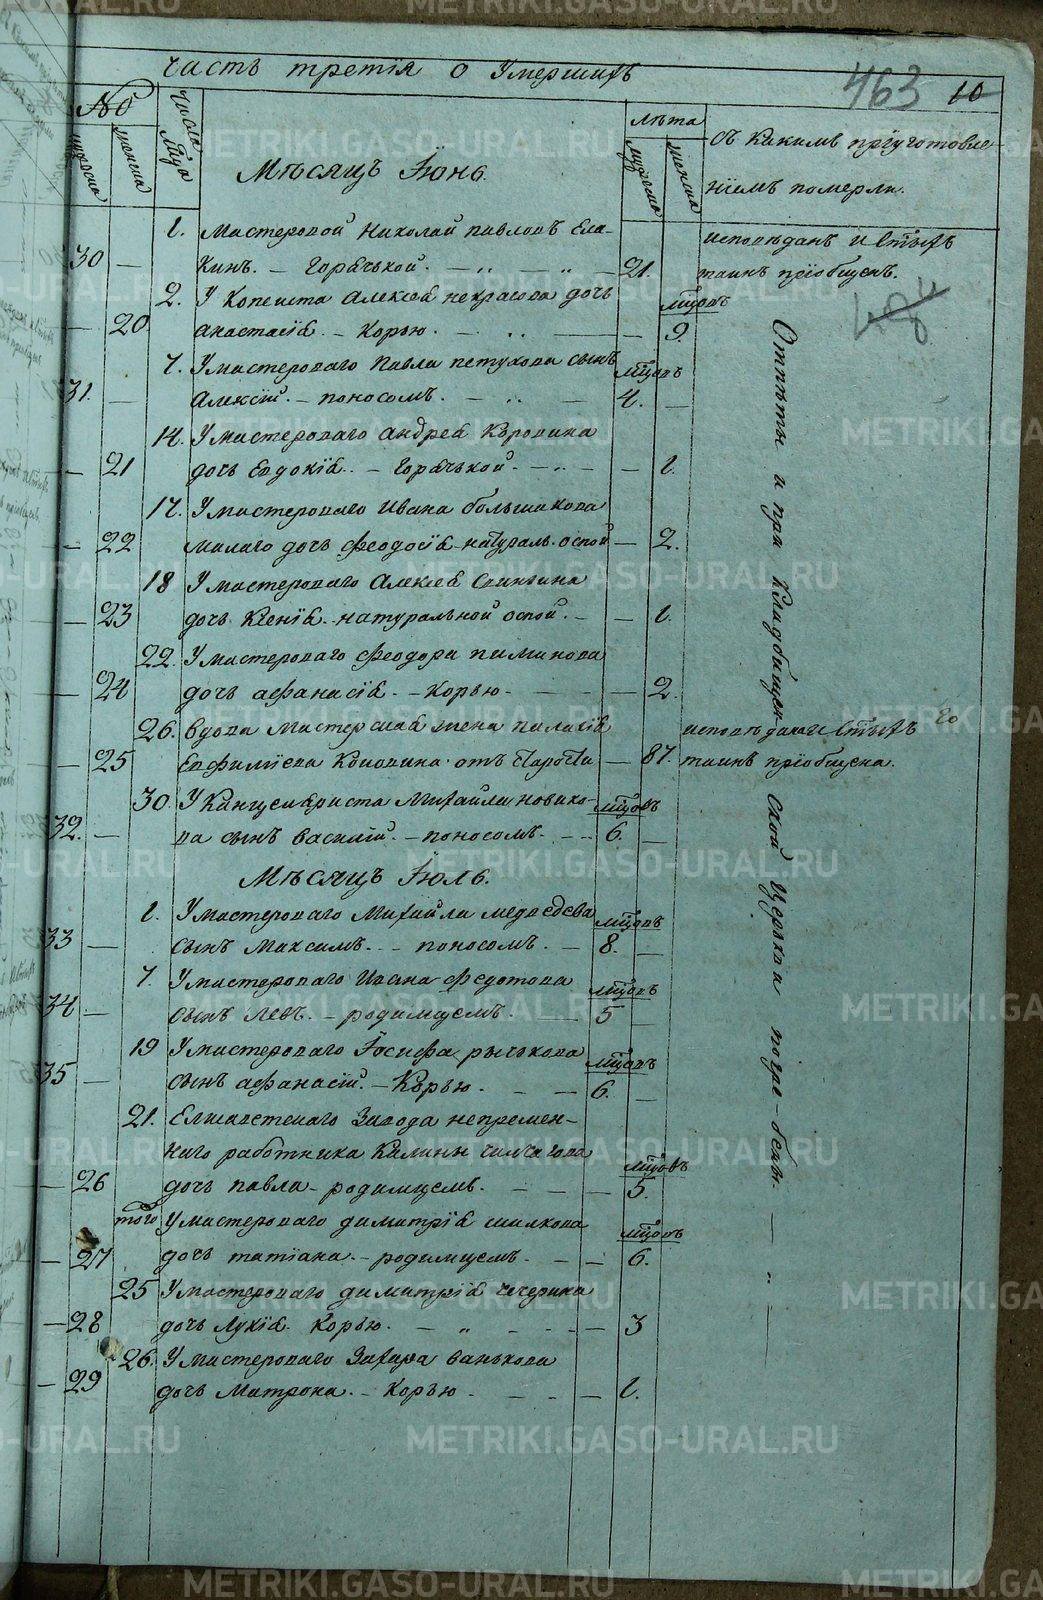 часть третія о умершихъ
463 10
№ числа мца лѣта съ какимъ пріуготовле-
мужеска женска мужеска женска ніемъ померли.
Мѣсяцъ Іюнь.
1. Мастеровой Николай павловъ Ела- исповѣданъ и Стыхъ
30 — кинъ. — Горячькой. — „ — „ — 21. таинъ пріобщенъ.
2. У Копеиста Алексея некрасова дочь мцовъ
— 20 анастасія. — Корью. — 9.
7. У мастероваго Павла петухова сынъ мцовъ
31. — Алексій. — поносомъ. — 4. —
14. У мастероваго андрея Коровина
— 21 дочь Евдокія. — Горячькой. — — 1.
17. У мастероваго Ивана большакова
— 22 малаго дочь Феодосія натураль. оспой — 2.
18 У мастероваго Алексея
— 23 дочь Ксенія. натуральной оспой. — — 1.
22. У мастероваго Феодора пиминова
— 24 дочь афанасія. — Корью. — — 2.
26. вдова Мастерская жена пилагія исповѣдана и Стыхъ
— 25 Ефимова Коновина отъ Старости — 87. таинъ пріобщена.
30. У Канцеляриста Михайла новико- мцовъ
32. — ва сынъ василій. — поносомъ. — 6. —
Мѣсяцъ Іюль.
1. У мастероваго Михайла медведева мцовъ
33 — сынъ Максимъ. — поносомъ. — 8. —
7. У мастероваго Ивана Федотова мцовъ
34 — сынъ Левъ. — родимцемъ. — 5 —
19 У мастероваго Іосифа рычькова мцовъ
35 — сынъ афанасій. — Корью. — 6. —
21. Елисаветскаго Завода непремен-
наго работника Калины мцовъ
— 26 дочь павла — родимцемъ. — — 5.
того У мастероваго димитрія шилкова мцовъ
— 27 дочь татіана. — родимцемъ. — — 6.
25 У мастероваго димитрія чечерина
— 28 дочь Лукія. Корью. — „ — — 3
26. У мастероваго Захара ванькова
— 29 дочь Матрона. — Корью. — — 1.
Отпѣты и при кладбищенской Церкви погребены. — „ —
METRIKI.GASO-URAL.RU